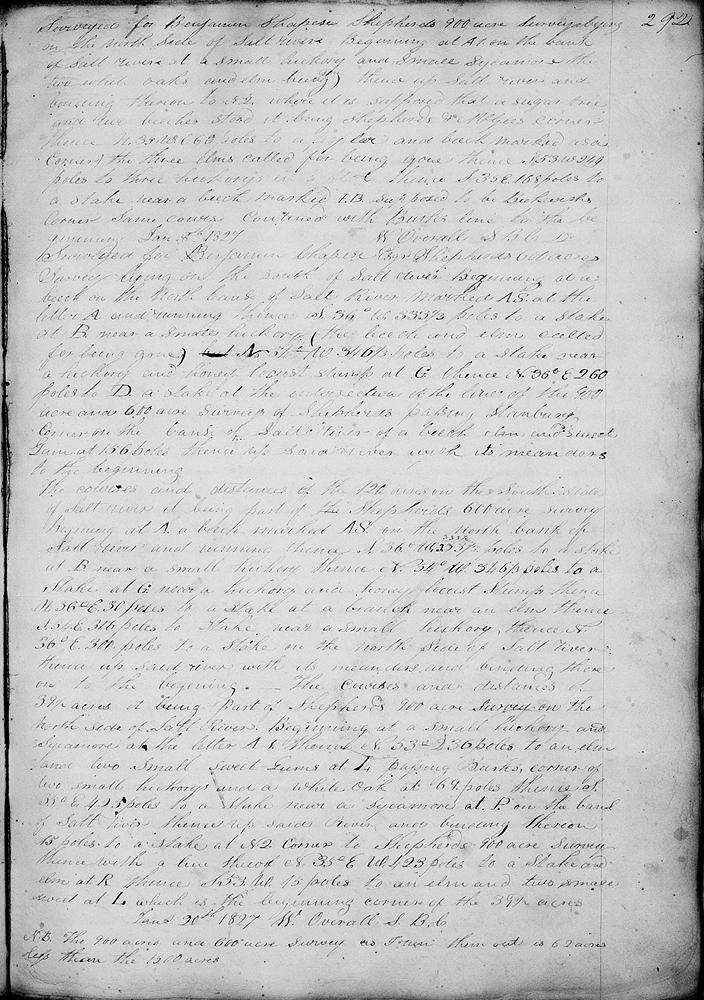 292
Surveyed for Benjamin Shapise Shepherds 900 acre Survey lying
on the North Side of Salt river Beginning at A1 on the bank
of Salt river at a Small hickory and Small Sycamore the
two white oaks and elm being thence up Salt river and
binding thereon to N2 where it is supposed that a sugar tree
and two beeches stood it being Shepherds & McGees corner
thence N 35 W 660 poles to a and beech marked as a
Corner the three elms called for being gone thence S 53 W 244
poles to three hickorys in a thence S 35 E 168 poles to
a stake near a beech marked I.B. Supposed to be
Corner Same course Continued with Burks line to the be
ginning Jan. 8th 1827 W Overall S. B. C.
Surveyed for Benjamin Chapise Shepherds 600 acre
Survey lying on the South of Salt river Beginning at a
beech on the North bank of Salt River marked A.S. at the
letter A and running thence S 36° W 333⅓ poles to a stake
at B near a Small hickory (the beech and elm called
for being gone) N 54° W 346⅓ poles to a stake near
a hickory and honey locust stump at C thence N 36° E 260
poles to D a stake at the intersection of the line of the 900
acre and 600 acre Surveys of Shepherds passing
Corner on the bank of Salt river of a beech elm and Sweet
Gum at 156 poles thence up Said river with its meanders
to the beginning
The courses and distances of the 120 acres on the South side
of Salt river it being part of the Shepherds 600 acre survey
beginning at A a beech marked A.S. on the North bank of
Salt river and running thence S 36° W 333⅓ poles to a stake
at B near a small hickory thence N 54° W 346⅓ poles to a
Stake at C near a hickory and honey locust Stump thence
N 36° E 30 poles to a stake at a branch near an elm thence
S 54 E 316 poles to Stake near a small hickory thence N
36° E 300 poles to a Stake on the north side of Salt river
thence up said river with its meanders and binding there
on to the begining. — The courses and distances of
39½ acres it being part of Shepherds 900 acre Survey on the
North side of Salt River Beginning at a small hickory and
Sycamore at the letter A 1 thence N 53° E 236 poles to an elm
and two Small Sweet Gums at L passing Burks corner of
two small hickorys and a White Oak at 69 poles thence S
35° E 425 poles to a stake near a Sycamore at P on the bank
of Salt river thence up said River and binding thereon
15 poles to a stake at N2 Corner to Shepherds 900 acre Survey
thence with a line thereof N 35° W 423 poles to a Stake and
elm at R thence S 53 W 15 poles to an elm and two small
sweet at L which is the beginning corner of the 39½ acres
Jan. 20th 1827 W. Overall S. B. C.
N.B. The 900 acres and 600 acre Survey as I run them out is 62 acres
Less than the 1500 acres